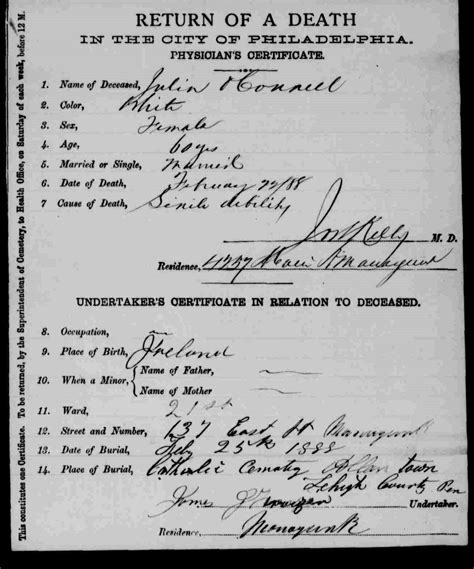 RETURN OF A DEATH
IN THE CITY OF PHILADELPHIA.
PHYSICIAN'S CERTIFICATE.
1. Name of Deceased, Julia O'Connell
2. Color, White
3. Sex, Female
4. Age, 60 yrs
5. Married or Single, Married
6. Date of Death, February 22/88
7 Cause of Death, Senile debility
Kelly M. D.
Residence, 4237 Main St Manayunk
UNDERTAKER'S CERTIFICATE IN RELATION TO DECEASED.
8. Occupation,
9. Place of Birth, Ireland
10. When a Minor, { Name of Father, —
Name of Mother —
11. Ward, 21st
12. Street and Number, 137 East St Manayunk
13. Date of Burial, Feby 25th 1888
14. Place of Burial, Catholic Cemetry Allen town
Lehigh County Pen
James Undertaker.
Residence, Manayunk
This constitutes one Certificate. To be returned, by the Superintendent of Cemetery, to Health Office, on Saturday of each week, before 12 M.